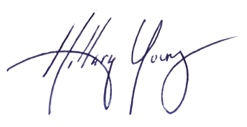 Hillary Young